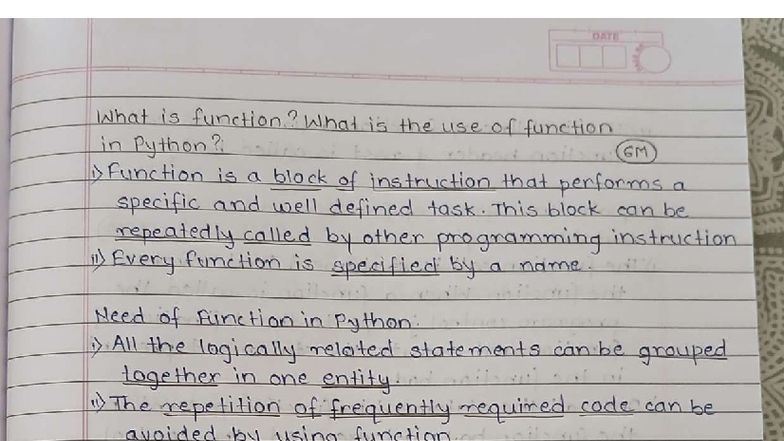 DATE
What is function? What is the use of function
in Python?
6M
i) Function is a block of instruction that performs a
specific and well defined task. This block can be
repeatedly called by other programming instruction
ii) Every function is specified by a name.
Need of function in Python:
i) All the logically related statements can be grouped
together in one entity.
ii) The repetition of frequently required code can be
avoided by using function.